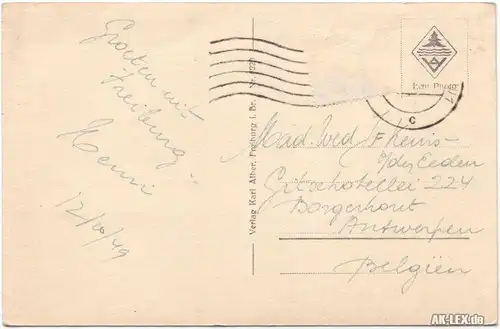 Groeten uit
Freiburg
Henri
12/10/49
Verlag Karl Alber, Freiburg i. Br. Nr.
Echt Photo
C
Mad. Wed
v/der Eeden
Gitschotellei 224
Borgerhout
Antwerpen
Belgiën
AK-LEX.de